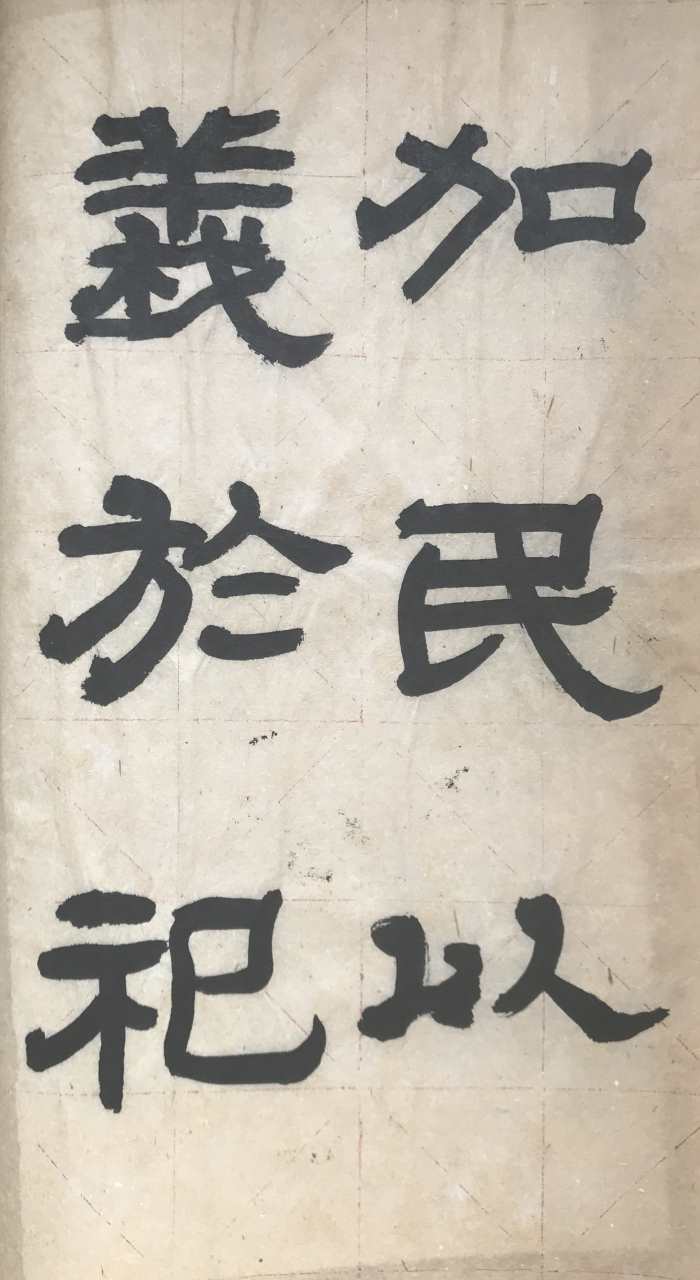 加民以
義於祀